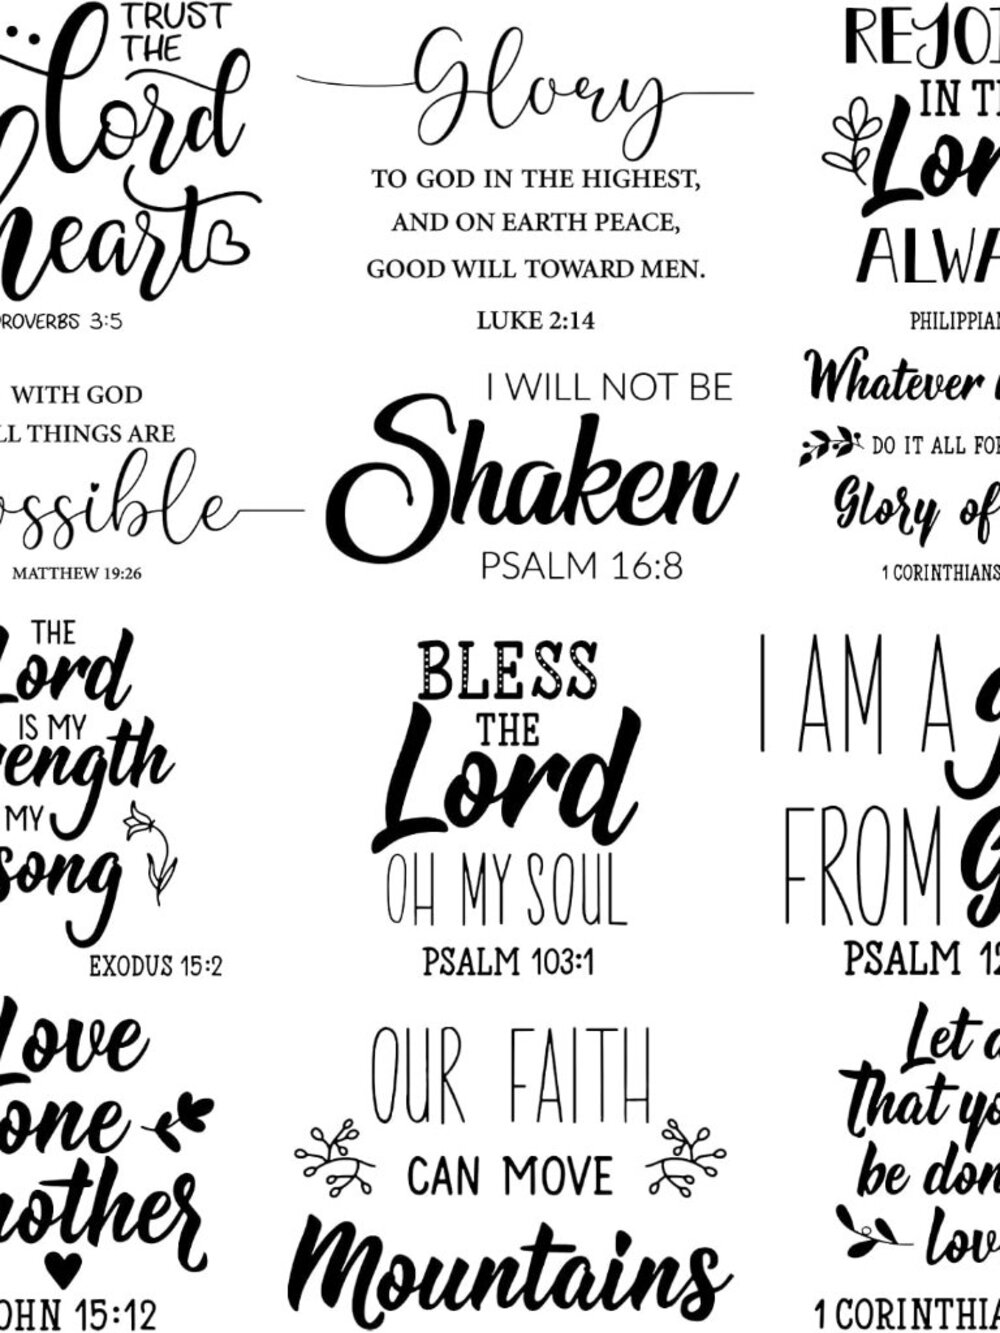 TRUST
THE
Lord
heart
PROVERBS 3:5
Glory
TO GOD IN THE HIGHEST,
AND ON EARTH PEACE,
GOOD WILL TOWARD MEN.
LUKE 2:14
REJOI
IN TH
Lor
ALWA
PHILIPPIAN
WITH GOD
LL THINGS ARE
ossible
MATTHEW 19:26
I WILL NOT BE
Shaken
PSALM 16:8
Whatever
DO IT ALL FOR
Glory of
1 CORINTHIANS
THE
Lord
IS MY
rength
MY
song
EXODUS 15:2
BLESS
THE
Lord
OH MY SOUL
PSALM 103:1
I AM A
FROM G
PSALM 12
Love
one
nother
OHN 15:12
OUR FAITH
CAN MOVE
Mountains
Let a
that yo
be don
lov
1 CORINTHIA